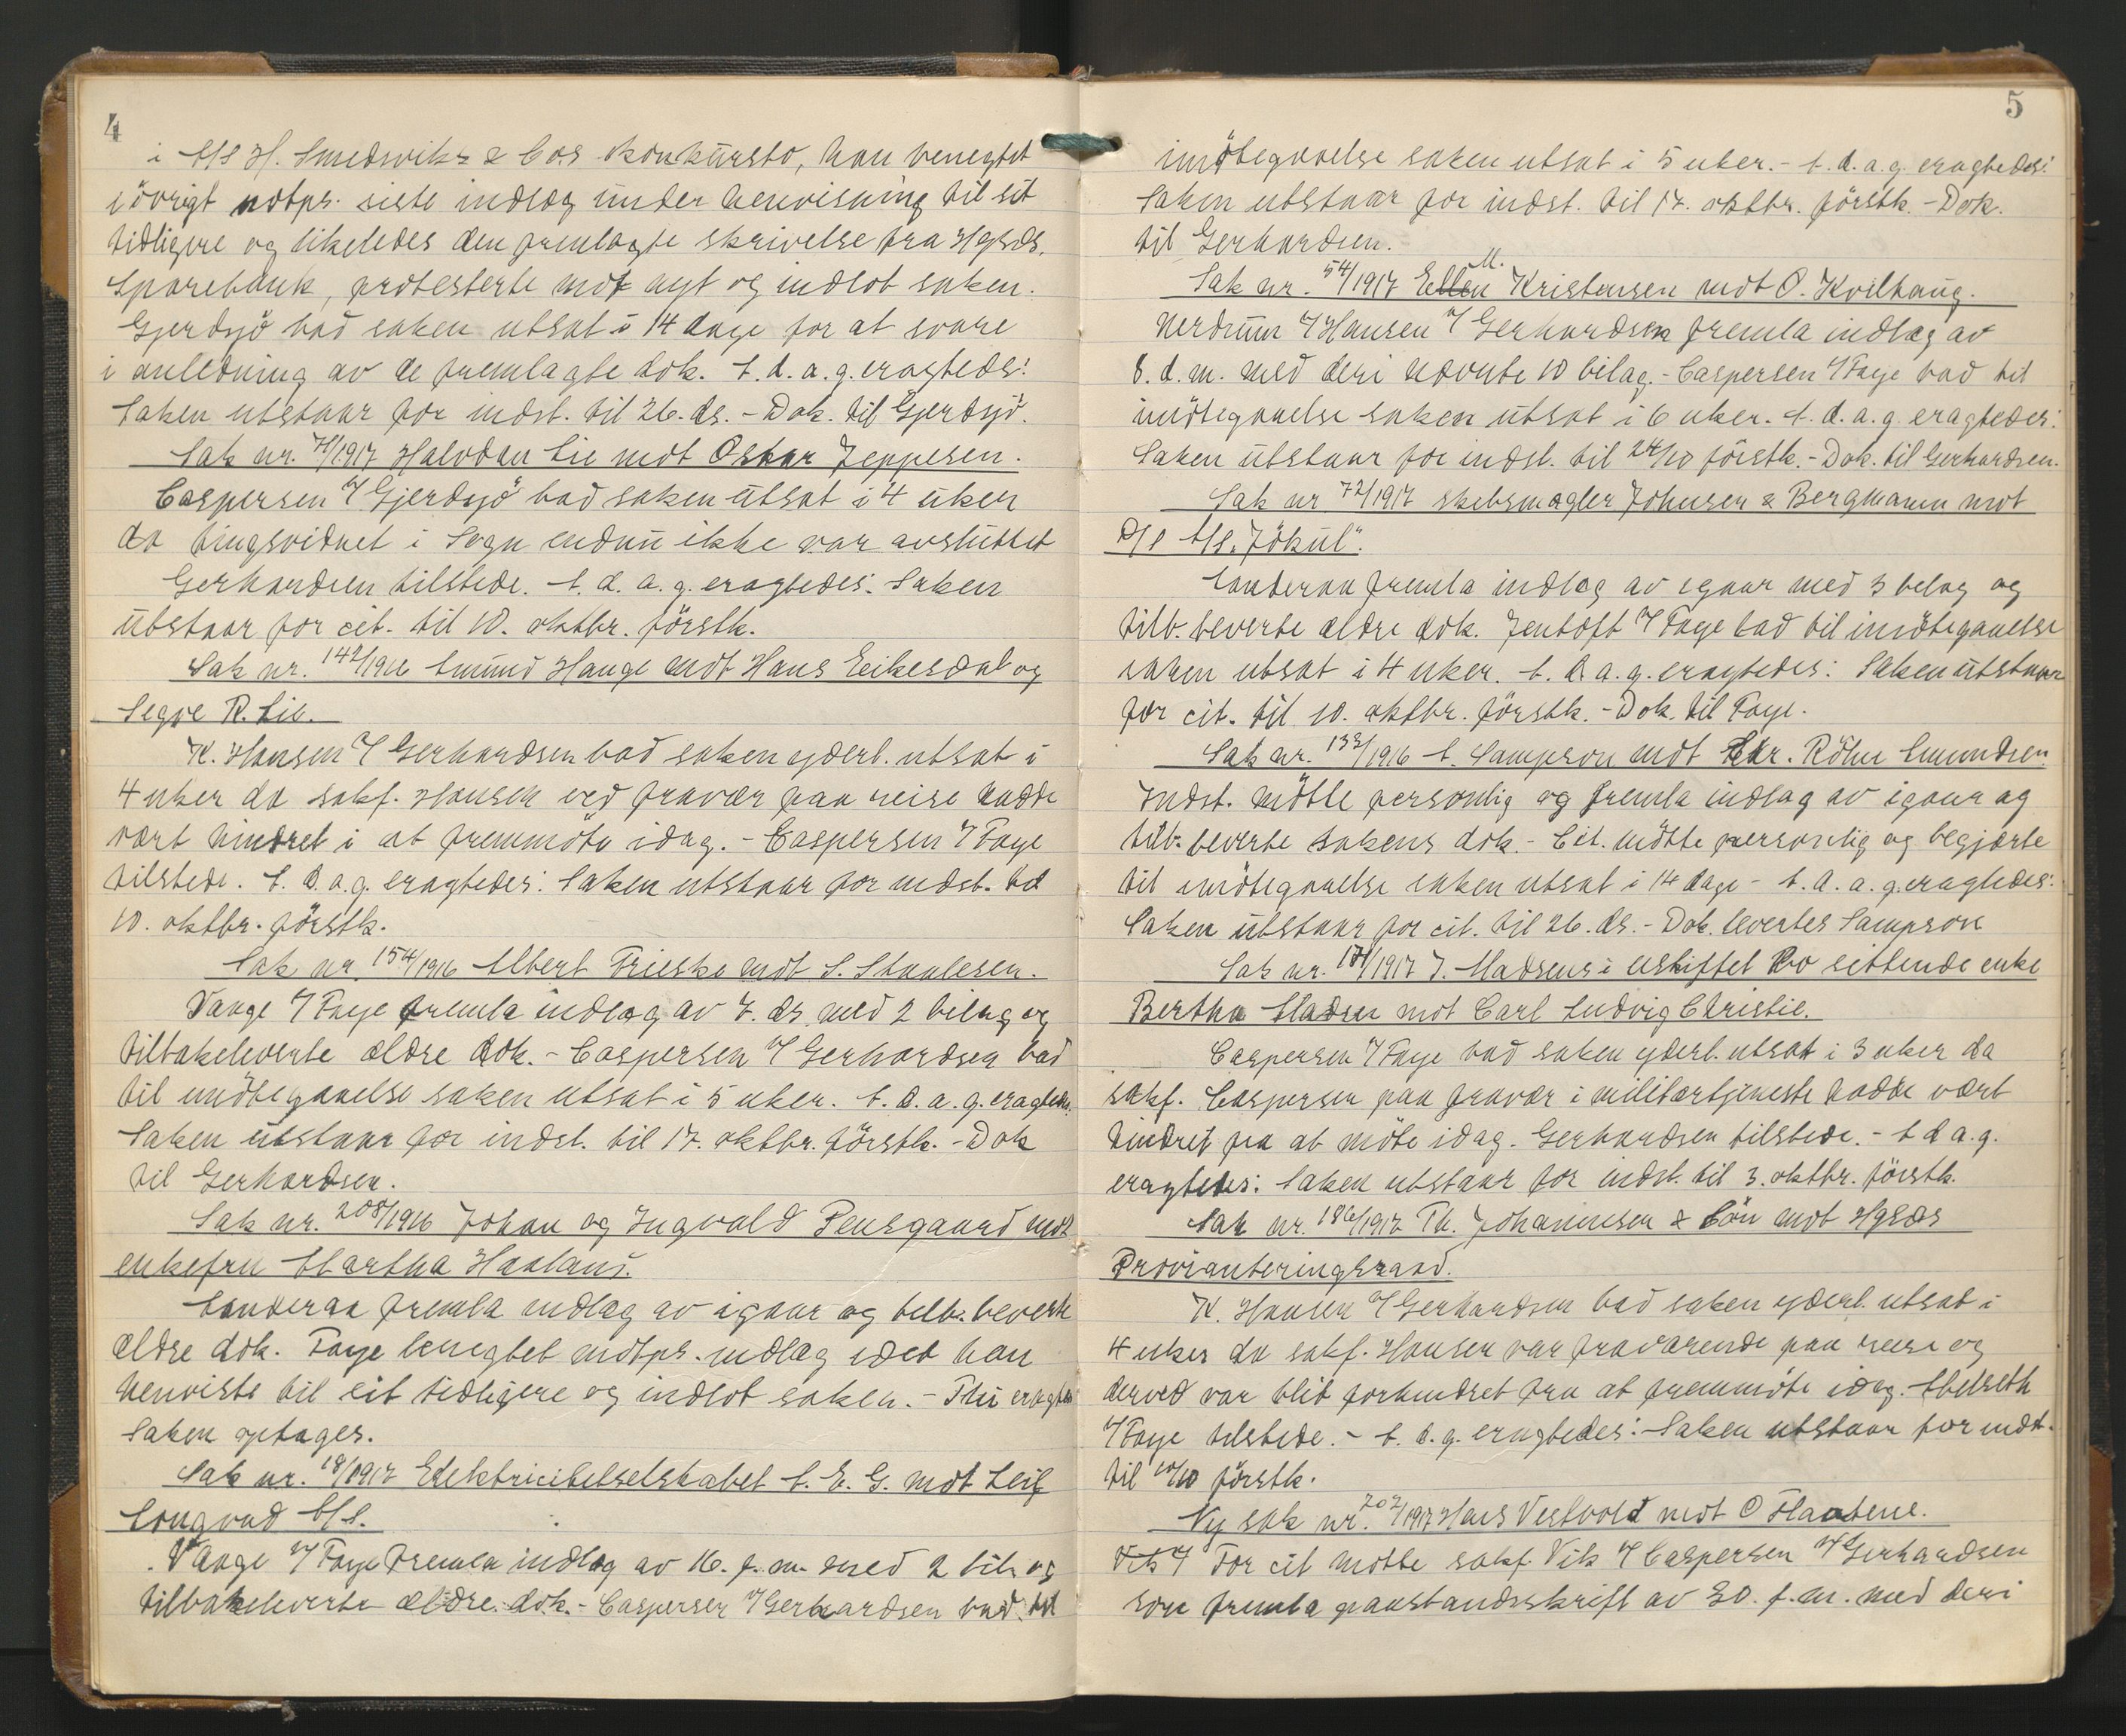 4
i A/S H. Smedsviks & Co.s konkursbo, han benegtet
iøvrigt motps. siste indlæg under henvisning til sit
tidligere og likeledes den fremlagte skrivelse fra Hgsds.
Sparebank, protesterte mot nyt og indlot saken.
Gjerdsjö bad saken utsat i 14 dage for at svare
i anledning av de fremlagte dok. A. d. a. g. eragtedes:
Saken utstaar for indst. til 26. ds. - Dok. til Gjerdsjö.
Sak nr. 71/1917 Halvdan Lie mot Oskar Jeppesen.
Caspersen v/ Gjerdsjö bad saken utsat i 4 uker
da tingsvidnet i Sogn endnu ikke var avsluttet
Gerhardsen tilstede. A. d. a. g. eragtedes: Saken
utstaar for cit. til 10. oktbr. förstk.
Sak nr. 142/1916 Amund Hauge mot Hans Eikesdal og
Segve R. Lie.
K. Hansen v/ Gerhardsen bad saken yderl. utsat i
4 uker da sakf. Hansen ved fravær paa reise hadde
vært hindret i at fremmöte idag. - Caspersen v/ Faye
tilstede. A. d. a. g. eragtedes: Saken utstaar for indst. til
10. oktbr. förstk.
Sak nr. 154/1916 Albert Frieske mot S. Staalesen.
Vange v/ Faye fremla indlæg av 7. ds. med 2 bilag og
tilbakeleverte ældre dok. - Caspersen v/ Gerhardsen bad
til imötegaaelse saken utsat i 5 uker. A. d. a. g. eragtedes:
Saken utstaar for indst. til 17. oktbr. förstk. - Dok
til Gerhardsen.
Sak nr. 208/1916 Johan og Ingvald Pensgaard mot
enkefru Martha Haaland.
Sanderaa fremla indlæg av igaar og tilb. leverte
ældre dok. Faye benegtet motps. indlæg idet han
henviste til sit tidligere og indlot saken. - Thi eragtes
Saken optages.
Sak nr. 18/1917 Elektricitetselskabet A. E. G. mot Leif
Longvad A/S.
Vange v/ Faye fremla indlæg av 16. f. m. med 2 bil. og
tilbakeleverte ældre dok. - Caspersen v/ Gerhardsen bad til
5
imötegaaelse saken utsat i 5 uker. - A. d. a. g. eragtedes:
Saken utstaar for indst. til 17. oktbr. förstk. - Dok.
til Gerhardsen.
Sak nr. 54/1917 Ellen M. Kristensen mot O. Kvilhaug.
Nerdrum v/ Hansen v/ Gerhardsen fremla indlæg av
8. d. m. med deri nævnte 10 bilag. - Caspersen v/ Faye bad til
imötegaaelse saken utsat i 6 uker. A. d. a. g. eragtedes:
Saken utstaar for indst. til 24/10 förstk. - Dok. til Gerhardsen.
Sak nr 72/1917 skibsmægler Johnsen & Bergmann mot
D/S A/S "Jökul".
Sanderaa fremla indlæg av igaar med 3 bilag og
tilb. leverte ældre dok. Jentoft v/ Faye bad til imötegaaelse
saken utsat i 4 uker. A. d. a. g. eragtedes: Saken utstaar
for cit. til 10. oktbr. förstk. - Dok. til Faye.
Sak nr. 133/1916 A. Sampson mot Chr. Röhr Amundsen.
Indst. mötte personlig og fremla indlæg av igaar og
tilb. leverte sakens dok. - Cit. mötte personlig og begjærte
til imötegaaelse saken utsat i 14 dage - A. d. a. g. eragtedes:
Saken utstaar for cit. til 26. ds. - Dok. levertes Sampson
Sak nr. 171/1917 J. Madsens i uskiftet bo sittende enke
Bertha Madsen mot Carl Ludvig Christie.
Caspersen v/ Faye bad saken yderl. utsat i 3 uker da
sakf. Caspersen paa fravær i militærtjeneste hadde vært
hindret fra at möte idag. Gerhardsen tilstede. - A d a. g.
eragtedes: Saken utstaar for indst. til 3. oktbr. förstk.
Sak nr. 186/1917 Th. Johannesen & Sön mot Hgsds
Provianteringsraad.
K. Hansen v/ Gerhardsen bad saken yderl. utsat i
4 uker da sakf. Hansen var fraværende paa reise og
derved var blit forhindret fra at fremmöte idag. Abelseth
v/ Faye tilstede. - A. d. g. eragtedes: Saken utstaar for indst.
til 10/10 förstk.
Ny sak nr. 202/1917 Hans Vestvold mot O Flaatene.
Vik v/ For cit mötte sakf. Vik v/ Caspersen v/ Gerhardsen
som fremla paastandsskrift av 30. f. m. med deri